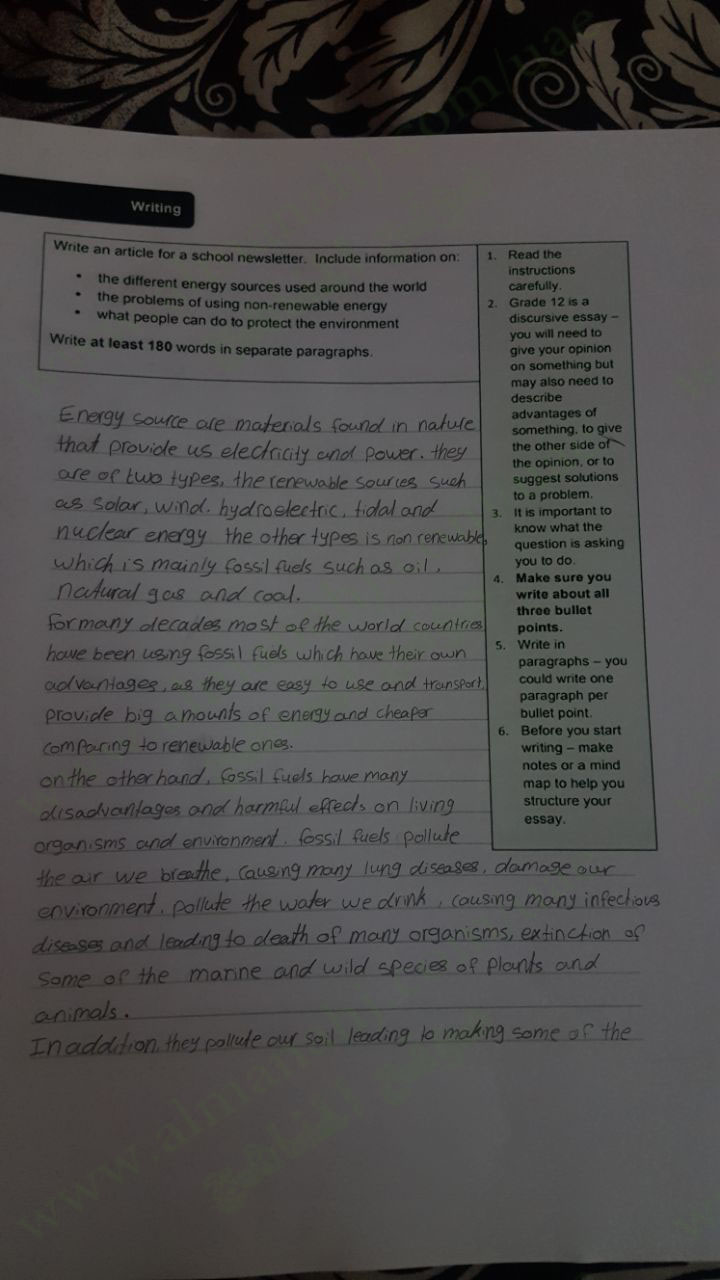 Writing
Write an article for a school newsletter. Include information on:
• the different energy sources used around the world
• the problems of using non-renewable energy
• what people can do to protect the environment
Write at least 180 words in separate paragraphs.
1. Read the
instructions
carefully.
2. Grade 12 is a
discursive essay –
you will need to
give your opinion
on something but
may also need to
describe
advantages of
something, to give
the other side of
the opinion, or to
suggest solutions
to a problem.
3. It is important to
know what the
question is asking
you to do.
4. Make sure you
write about all
three bullet
points.
5. Write in
paragraphs – you
could write one
paragraph per
bullet point.
6. Before you start
writing – make
notes or a mind
map to help you
structure your
essay.
Energy source are materials found in nature
that provide us electricity and power. they
are of two types, the renewable sources such
as solar, wind, hydroelectric, tidal and
nuclear energy the other types is non renewable,
which is mainly fossil fuels such as oil,
natural gas and coal.
for many decades most of the world countries
have been using fossil fuels which have their own
advantages, as they are easy to use and transport,
provide big amounts of energy and cheaper
comparing to renewable ones.
on the other hand, fossil fuels have many
disadvantages and harmful effects on living
organisms and environment. fossil fuels pollute
the air we breathe, causing many lung diseases, damage our
environment, pollute the water we drink, causing many infectious
diseases and leading to death of many organisms, extinction of
some of the marine and wild species of plants and
animals.
In addition, they pollute our soil leading to making some of the